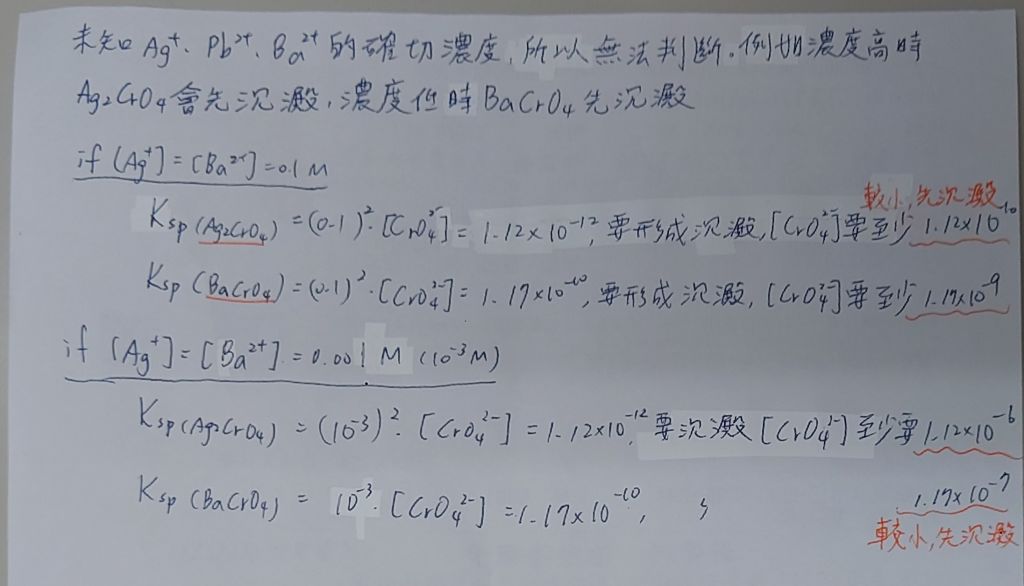 未知 Ag⁺、Pb²⁺、Ba²⁺ 的確切濃度,所以無法判斷。例如濃度高時
Ag₂CrO₄ 會先沉澱,濃度低時 BaCrO₄ 先沉澱
if [Ag⁺]=[Ba²⁺]=0.1 M
較小,先沉澱
Ksp (Ag₂CrO₄) = (0.1)²·[CrO₄²⁻] = 1.12×10⁻¹², 要形成沉澱, [CrO₄²⁻]要至少 1.12×10⁻¹⁰
Ksp (BaCrO₄) = (0.1)²·[CrO₄²⁻] = 1.17×10⁻¹⁰, 要形成沉澱, [CrO₄²⁻]要至少 1.17×10⁻⁹
if [Ag⁺]=[Ba²⁺]=0.001 M (10⁻³M)
Ksp (Ag₂CrO₄) = (10⁻³)²·[CrO₄²⁻] = 1.12×10⁻¹², 要沉澱 [CrO₄²⁻] 至少要 1.12×10⁻⁶
Ksp (BaCrO₄) = 10⁻³·[CrO₄²⁻] = 1.17×10⁻¹⁰, 1.17×10⁻⁷
較小,先沉澱